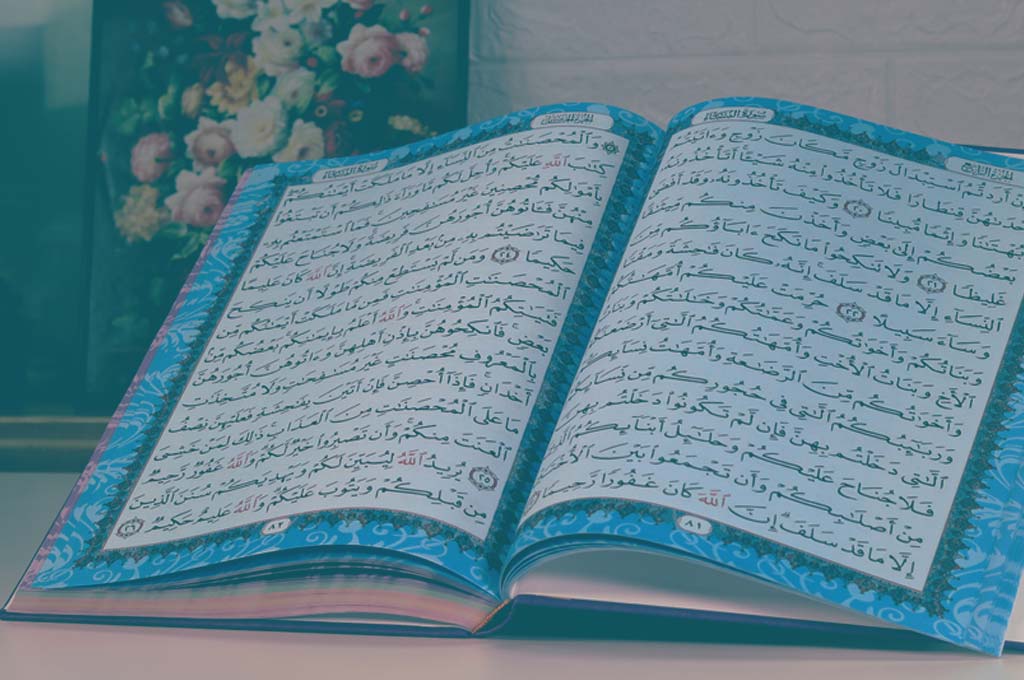 سورة النساء
الجزء الرابع
وَإِنْ أَرَدتُّمُ ٱسْتِبْدَالَ زَوْجٍ مَّكَانَ زَوْجٍ وَءَاتَيْتُمْ
إِحْدَىٰهُنَّ قِنطَارًا فَلَا تَأْخُذُوا۟ مِنْهُ شَيْـًٔا أَتَأْخُذُونَهُۥ
بُهْتَـٰنًا وَإِثْمًا مُّبِينًا ٢٠ وَكَيْفَ تَأْخُذُونَهُۥ وَقَدْ أَفْضَىٰ
بَعْضُكُمْ إِلَىٰ بَعْضٍ وَأَخَذْنَ مِنكُم مِّيثَـٰقًا
غَلِيظًا ٢١ وَلَا تَنكِحُوا۟ مَا نَكَحَ ءَابَآؤُكُم مِّنَ
ٱلنِّسَآءِ إِلَّا مَا قَدْ سَلَفَ إِنَّهُۥ كَانَ فَـٰحِشَةً وَمَقْتًا
وَسَآءَ سَبِيلًا ٢٢ حُرِّمَتْ عَلَيْكُمْ أُمَّهَـٰتُكُمْ
وَبَنَاتُكُمْ وَأَخَوَٰتُكُمْ وَعَمَّـٰتُكُمْ وَخَـٰلَـٰتُكُمْ وَبَنَاتُ
ٱلْأَخِ وَبَنَاتُ ٱلْأُخْتِ وَأُمَّهَـٰتُكُمُ ٱلَّـٰتِىٓ أَرْضَعْنَكُمْ
وَأَخَوَٰتُكُم مِّنَ ٱلرَّضَـٰعَةِ وَأُمَّهَـٰتُ نِسَآئِكُمْ
وَرَبَـٰٓئِبُكُمُ ٱلَّـٰتِى فِى حُجُورِكُم مِّن نِّسَآئِكُمُ
ٱلَّـٰتِى دَخَلْتُم بِهِنَّ فَإِن لَّمْ تَكُونُوا۟ دَخَلْتُم بِهِنَّ
فَلَا جُنَاحَ عَلَيْكُمْ وَحَلَـٰٓئِلُ أَبْنَآئِكُمُ ٱلَّذِينَ
مِنْ أَصْلَـٰبِكُمْ وَأَن تَجْمَعُوا۟ بَيْنَ ٱلْأُخْتَيْنِ
إِلَّا مَا قَدْ سَلَفَ إِنَّ ٱللَّهَ كَانَ غَفُورًا رَّحِيمًا
٨١
سورة النساء
وَٱلْمُحْصَنَـٰتُ مِنَ ٱلنِّسَآءِ إِلَّا مَا مَلَكَتْ أَيْمَـٰنُكُمْ
كِتَـٰبَ ٱللَّهِ عَلَيْكُمْ وَأُحِلَّ لَكُم مَّا وَرَآءَ ذَٰلِكُمْ أَن تَبْتَغُوا۟
بِأَمْوَٰلِكُم مُّحْصِنِينَ غَيْرَ مُسَـٰفِحِينَ فَمَا ٱسْتَمْتَعْتُم بِهِۦ
مِنْهُنَّ فَـَٔاتُوهُنَّ أُجُورَهُنَّ فَرِيضَةً وَلَا جُنَاحَ عَلَيْكُمْ
فِيمَا تَرَٰضَيْتُم بِهِۦ مِنۢ بَعْدِ ٱلْفَرِيضَةِ إِنَّ ٱللَّهَ كَانَ عَلِيمًا
حَكِيمًا ٢٤ وَمَن لَّمْ يَسْتَطِعْ مِنكُمْ طَوْلًا أَن يَنكِحَ
ٱلْمُحْصَنَـٰتِ ٱلْمُؤْمِنَـٰتِ فَمِن مَّا مَلَكَتْ أَيْمَـٰنُكُم مِّن
فَتَيَـٰتِكُمُ ٱلْمُؤْمِنَـٰتِ وَٱللَّهُ أَعْلَمُ بِإِيمَـٰنِكُم بَعْضُكُم مِّنۢ
بَعْضٍ فَٱنكِحُوهُنَّ بِإِذْنِ أَهْلِهِنَّ وَءَاتُوهُنَّ أُجُورَهُنَّ
بِٱلْمَعْرُوفِ مُحْصَنَـٰتٍ غَيْرَ مُسَـٰفِحَـٰتٍ وَلَا مُتَّخِذَٰتِ
أَخْدَانٍ فَإِذَآ أُحْصِنَّ فَإِنْ أَتَيْنَ بِفَـٰحِشَةٍ فَعَلَيْهِنَّ نِصْفُ
مَا عَلَى ٱلْمُحْصَنَـٰتِ مِنَ ٱلْعَذَابِ ذَٰلِكَ لِمَنْ خَشِىَ
ٱلْعَنَتَ مِنكُمْ وَأَن تَصْبِرُوا۟ خَيْرٌ لَّكُمْ وَٱللَّهُ غَفُورٌ رَّحِيمٌ
٢٥ يُرِيدُ ٱللَّهُ لِيُبَيِّنَ لَكُمْ وَيَهْدِيَكُمْ سُنَنَ ٱلَّذِينَ
مِن قَبْلِكُمْ وَيَتُوبَ عَلَيْكُمْ وَٱللَّهُ عَلِيمٌ حَكِيمٌ ٢٦
٨٢